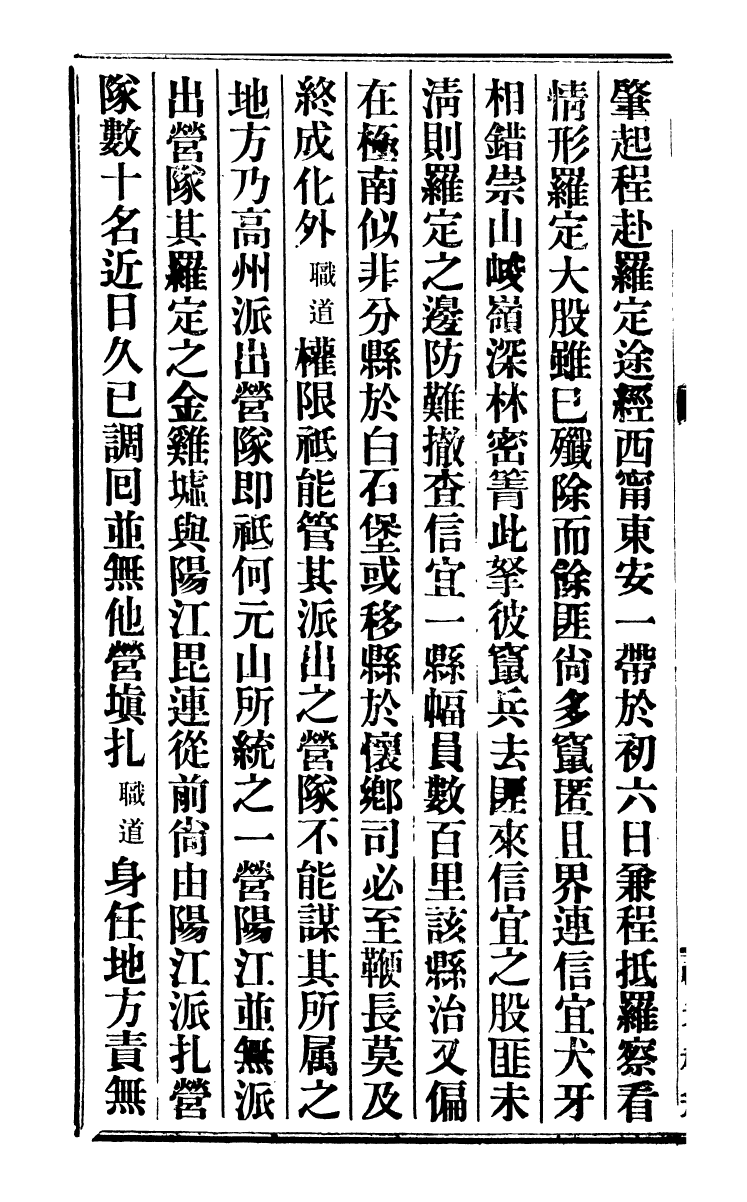 肇起程赴羅定途經西甯東安一帶於初六日兼程抵羅察看
情形羅定大股雖已殲除而餘匪尙多竄匿且界連信宜犬牙
相錯崇山峻嶺深林密箐此拏彼竄兵去匪來信宜之股匪未
淸則羅定之邊防難撤查信宜一縣幅員數百里該縣治又偏
在極南似非分縣於白石堡或移縣於懷鄕司必至鞭長莫及
終成化外職道權限祗能管其派出之營隊不能謀其所属之
地方乃高州派出營隊卽祗何元山所統之一營陽江並無派
出營隊其羅定之金雞墟與陽江毘連從前尙由陽江派扎營
隊數十名近日久已調囘並無他營塡扎職道身任地方責無